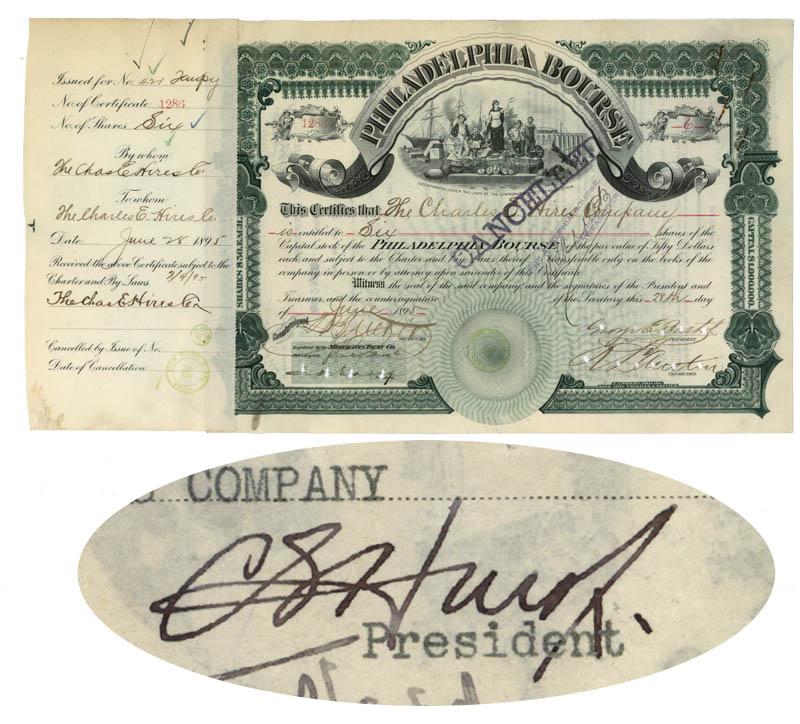 Issued for No. 421 Tempy
No. of Certificate 1286
No. of Shares Six
By whom
The Chas E Hires Co
To whom
The Charles E. Hires Co.
Date June 28 1895
Received the above Certificate subject to the
Charter and By-Laws.
The Chas E Hires Co
Cancelled by Issue of No.
Date of Cancellation
PHILADELPHIA BOURSE
128
6
INCORPORATED UNDER THE LAWS OF THE COMMONWEALTH OF PENNSYLVANIA
CANCELLED
This Certifies that The Charles E. Hires Company
is entitled to Six shares of the
Capital stock of the PHILADELPHIA BOURSE of the par value of Fifty Dollars
each and subject to the Charter and By Laws thereof Transferable only on the books of the
company, in person or by attorney upon surrender of this Certificate
Witness the seal of the said company and the signatures of the President and
Treasurer, and the countersignature of the Secretary this 28th day
of June 1895
SHARES $50. EACH.
CAPITAL $1,000,000.
Countersigned
PRESIDENT
Registered by MERCHANTS TRUST CO.
TREASURER
COMPANY
C E Hires
President